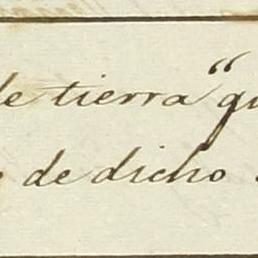 de tierra "
de dicho